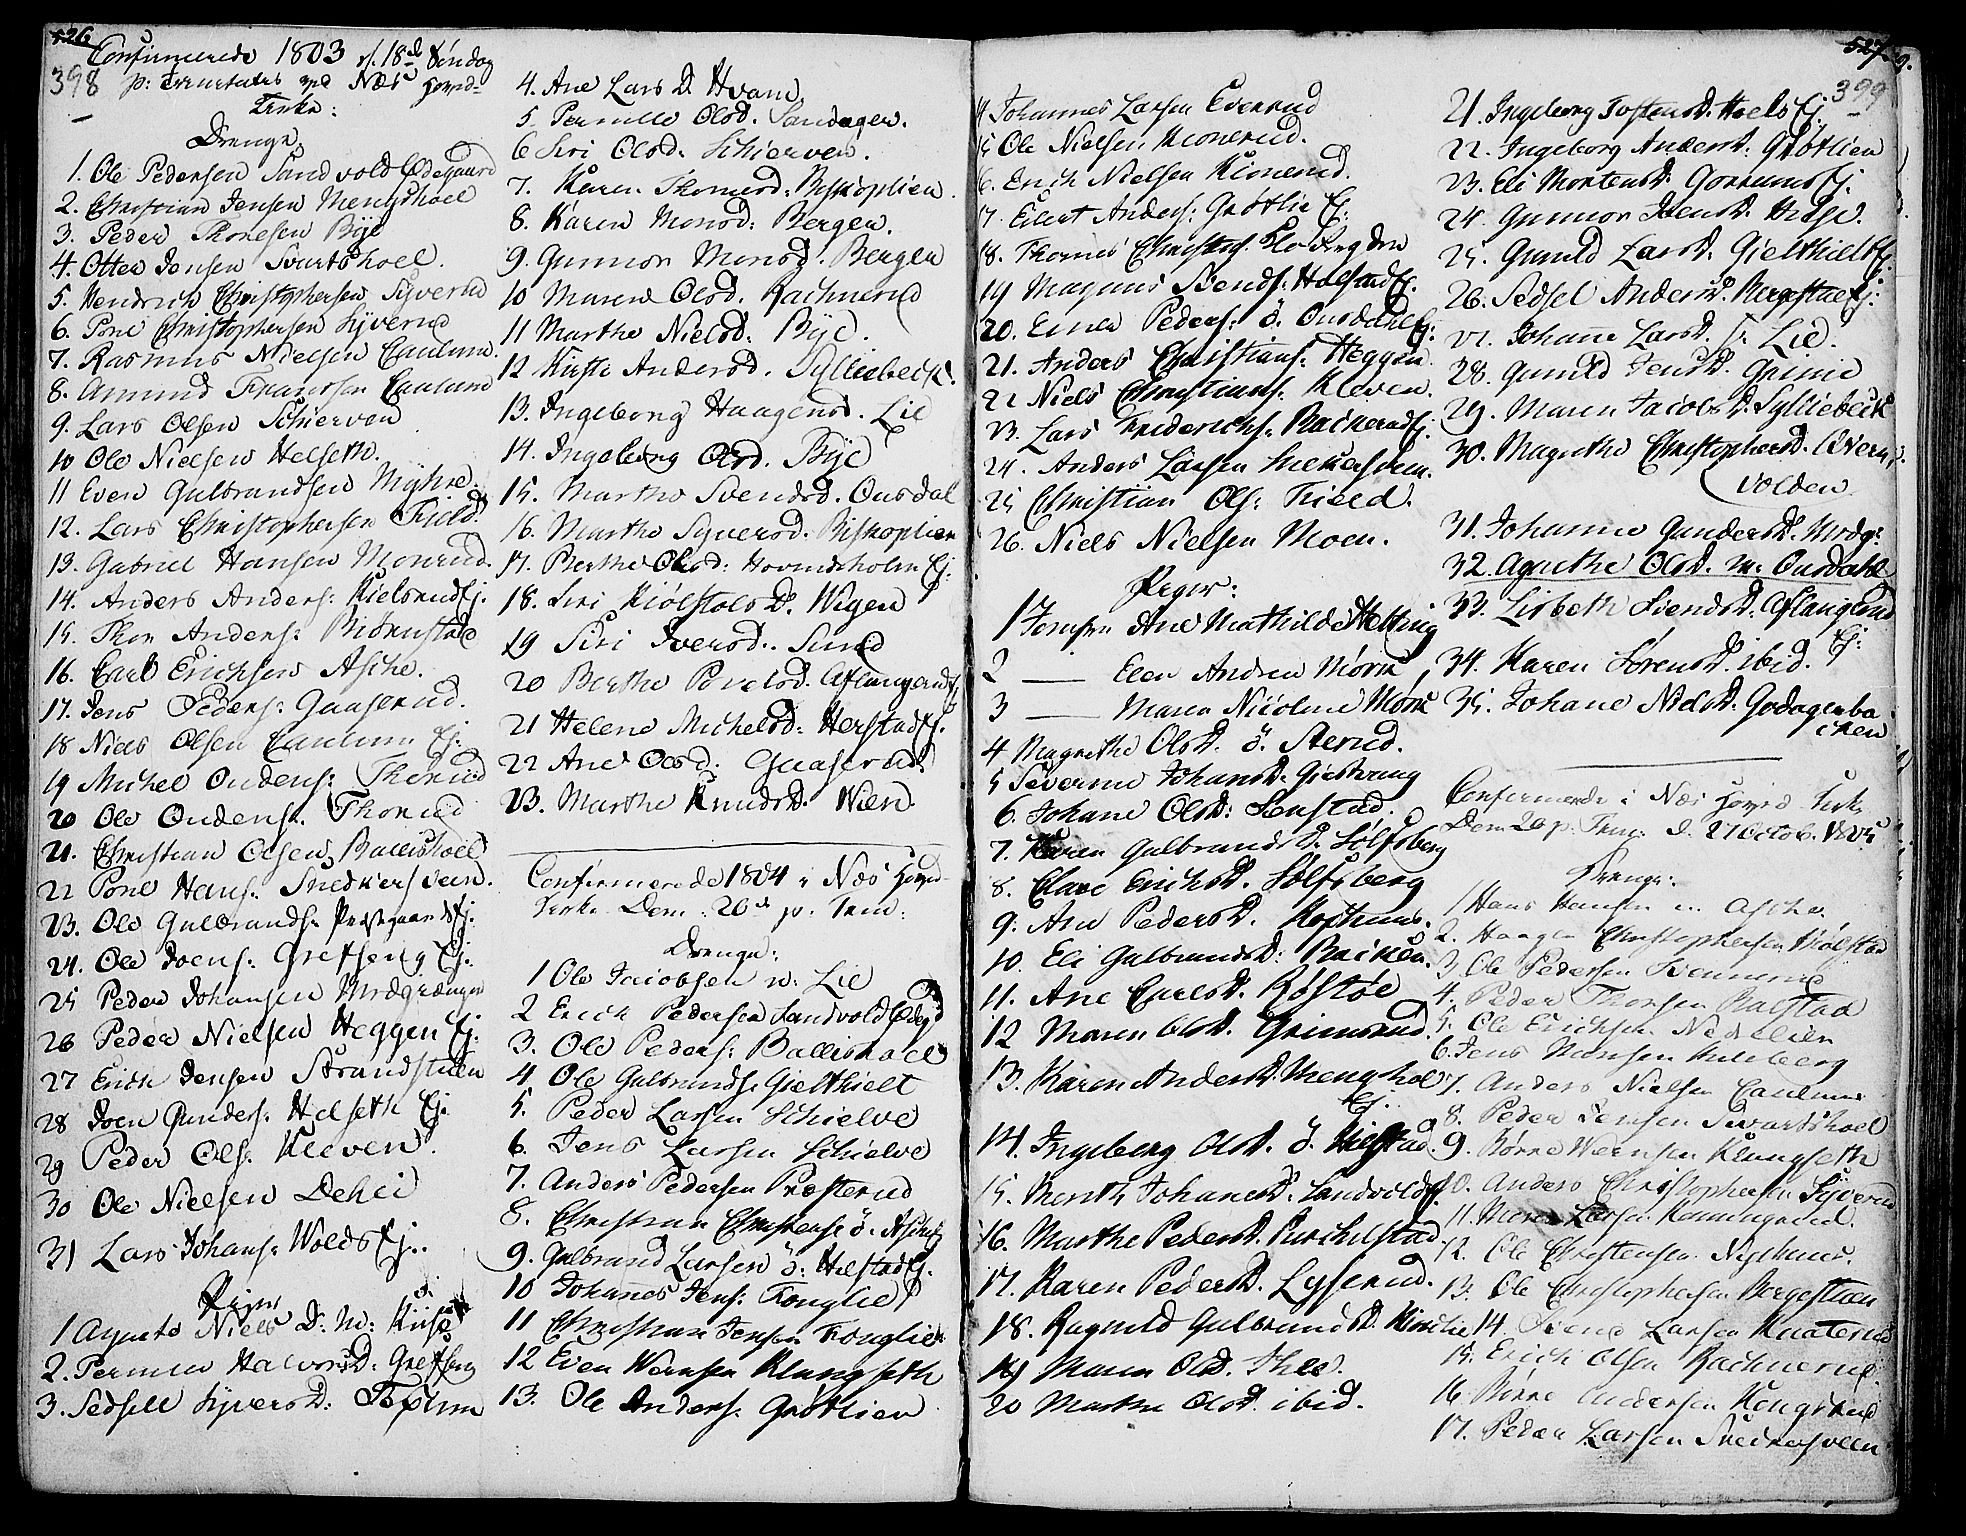 526
398
Confirmerede 1803 d. 18d Søndag
p: Trinitatis ved Næs Hoved-
Kirke:
Drenge.
1. Ole Pedersen Sandvold Ødegaard
2. Christian Jensen Mengshoel
3. Peder Thoresen Bÿe
4. Otter Jensen Svartshoel.
5. Hendrich Christophersen Syverud
6. Poul Christophersen Syverud
7. Rasmus Nielsen Caulum.
8. Amund Frantsen Caulum
9. Lars Olsen Schierven
10 Ole Nielsen Helseth.
11 Even Gulbrandsen Myhre.
12. Lars Christophersen Field.
13. Gabriel Hansen Monrud.
14. Anders Anders: Kielsrud Ej.
15. Thor Anders: Biørnstad
16. Carl Erichsen Aske.
17. Jens Peders: Gaaserud.
18 Niels Olsen Caulum Ej:
19 Michel Oudens: Thorud
20 Ole Oudens. Thorud
21. Christian Olsen Ballishoel
22 Poul Hans: Snedkersveen.
23. Ole Gulbrands: Prestgaards Ej.
24. Ole Joens: Gretseng Ej:
25 Peder Johansen
26 Peder Nielsen Heggen Ej:
27 Erich Jensen Strandstuen
28 Joen Gunders: Helseth Ej.
29 Peder Ols: Kleven.
30 Ole Nielsen Dehli
31 Lars Johans: Wolds Ej..
Piger
1 Agneta Niels D: N: Kiise
2. Pernille Halvors D: Gretseng
3. Sedsele Syvers D:
4. Ane Lars D. Hvam
5. Pernille Olsd. Sandager.
6 Siri Olsd: Schierven.
7. Karen Thomesd: Biskoplien.
8. Karen Monsd: Bergen.
9. Gunnor Monsd. Bergen
10 Maren Olsd. Rachnerud
11 Marthe Nielsd: Bÿe.
12 Kirsti Andersd. Sylliebech.
13. Ingeborg Haagensd. Lie
14. Ingeborg Olsd. Bÿe
15. Marthe Svendsd. Ousdal
16. Marthe Syversd. Biskoplien
17. Berthe Olsd: Hovindsholm Ej:
18. Siri Kiølstols D. Wigen
19 Siri Iversd. Sund
20 Berthe Povelsd. Aflangerud Ej
21 Helene Michelsd: Herstad Ej.
22 Ane Olsd. Gaaserud.
23. Marthe Knuds D. Wien.
Confirmerede 1804 i Næs Hoved-
Kirke Dom: 26d p. Trin:
Drenge:
1 Ole Jacobsen n: Lie
2 Erich Pedersen Sandvold Ødegd
3. Ole Peders: Ballishoel
4 Ole Gulbrands: Gielthielt
5. Peder Larsen Schielve
6 Jens Larsen Schielve
7. Anders Pedersen Præsterud
8. Christian Christens: ö.
9. Gulbrand Larsen ö: Helstad Ej.
10 Johannes Jens: Fonglie
11 Christian Jensen Fonglie
12 Even Wernsen Klangseth
13. Ole Anders: Grøtlien
527
399
14 Johannes Larsen Evenrud
15 Ole Nielsen Kionerud.
16. Erich Nielsen Kionerud.
17. Eilert Anders: Grøtlie Ej:
18. Thomes
19 Magnus Svends: Holstad Ej.
20. Einer Peders: ö. Ousdahl Ej:
21. Anders Christians: Heggen
22 Niels Christians. Kleven.
23. Lars Friderichs: Bakerud Ej.
24. Anders Larsen Snekersveen.
25 Christian Ols: Field.
26. Niels Nielsen Moen.
Piger:
1 Jomfru Ane Mathilde Hetting
2 — Elen Andrea Mørk
3 — Maren Nicoline Mørk
4 Magrethe Olsd. ö. Sterud.
5 Severine Johansd. Giestvang
6. Johane Olsd: Senstad.
7. Karen Gulbrands D. Sølfsberg
8. Clare Erichsd. Sølfsberg
9. Ane Peders D.
10. Eli Gulbrands D: Bakken.
11. Ane Carlsd. Røstøe
12 Maren Olsd. Grimsrud.
13. Karen Anders D. Mengshoel
Ej.
14. Ingeborg Olsd. ö. Helstad.
15. Johans D. Sandvold Ej.
16. Marthe Peders D.
17. Karen Peders D. Lyserud.
18. Ragnild Gulbrands D.
19 Maren Olsd. Thee.
20 Marthe Olsd. ibid.
21. Ingeborg Tostens D. Hoels Ej.
22. Ingeborg Anders D: Grøtlien
23. Eli Mortens D. Ej.
24. Gunnor Jens D.
25. Gunild Lars D. Gielthielt Ej.
26. Sedsel Anders D. Bergestue Ej.
27. Johane Lars D. Lie.
28. Gunild Jens D. Grime
29. Maren Jacobs D. Sylliebeck
30. Magrethe Christophers D.
volden.
31. Johanne Gunders D.
32. Agnethe Olsd. n. Ousdahl
33. Lisbeth Svends D. Aflangerud
Ej:
34. Karen Sørens D. ibid.
35. Johane Niels D. Godagerba
cken
Confirmerede i Næs Hoved Kirke
Dom. 20 p. Trin: d. 27 Octob. 1805
Drenge:
1 Hans Hansen n. Aske.
2. Haagen Christophersen Kiølstad
3. Ole Pedersen Svennerud
4. Peder Thorsen Ralstad
5. Ole Erichsen Nedlien
6. Jens Monsen
7. Anders Nielsen Caulum
8. Peder Jensen Svartshoel
9. Børre Wernsen Klangseth
10. Anders Christophersen Syverud
11. Larsen
12. Ole Christensen Nyehuus.
13. Ole Christophersen Bergestuen
14 Svend Larsen
15. Erich Olsen Rachnerud.
16 Børre Andersen
17. Peder Larsen Snedkersveen